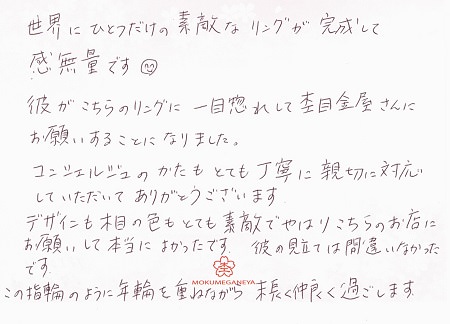 世界にひとつだけの素敵なリングが完成して
感無量です
彼がこちらのリングに一目惚れして杢目金屋さんに
お願いすることになりました。
コンシェルジュのかたもとても丁寧に親切に対応
していただいてありがとうございます
デザインも木目の色もとても素敵でやはりこちらのお店に
お願いして本当によかったです 彼の見立ては間違いなかった
です。
杢
MOKUMEGANEYA
この指輪のように年輪を重ねながら末長く仲良く過ごします